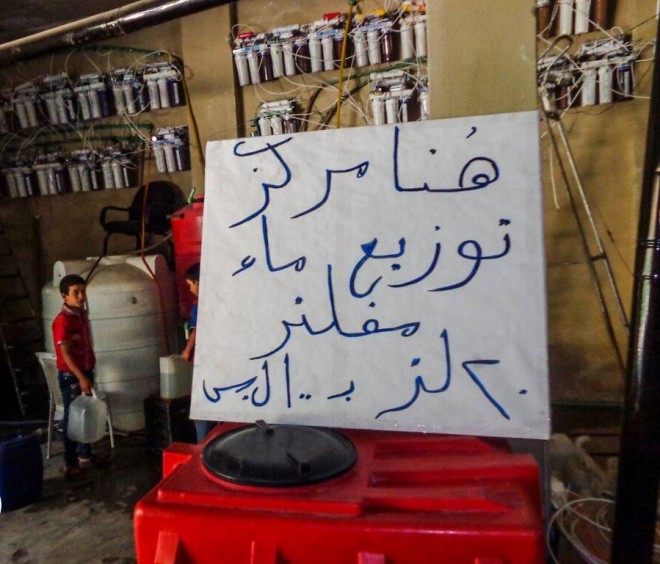 هُنا مركز
توزيع ماء
مفلتر
٢٠ لتر بـ ١٠٠ ل.س